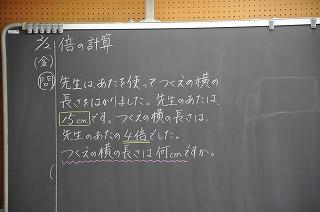 2/2 倍の計算
(金)
問 先生は、あたを使ってつくえの横の
長さをはかりました。先生のあたは、
15cmです。つくえの横の長さは、
先生のあたの4倍でした。
つくえの横の長さは何cmですか。